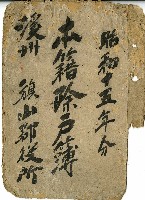 昭和十五年分
本籍除戸簿
溪州
旗山郡役所